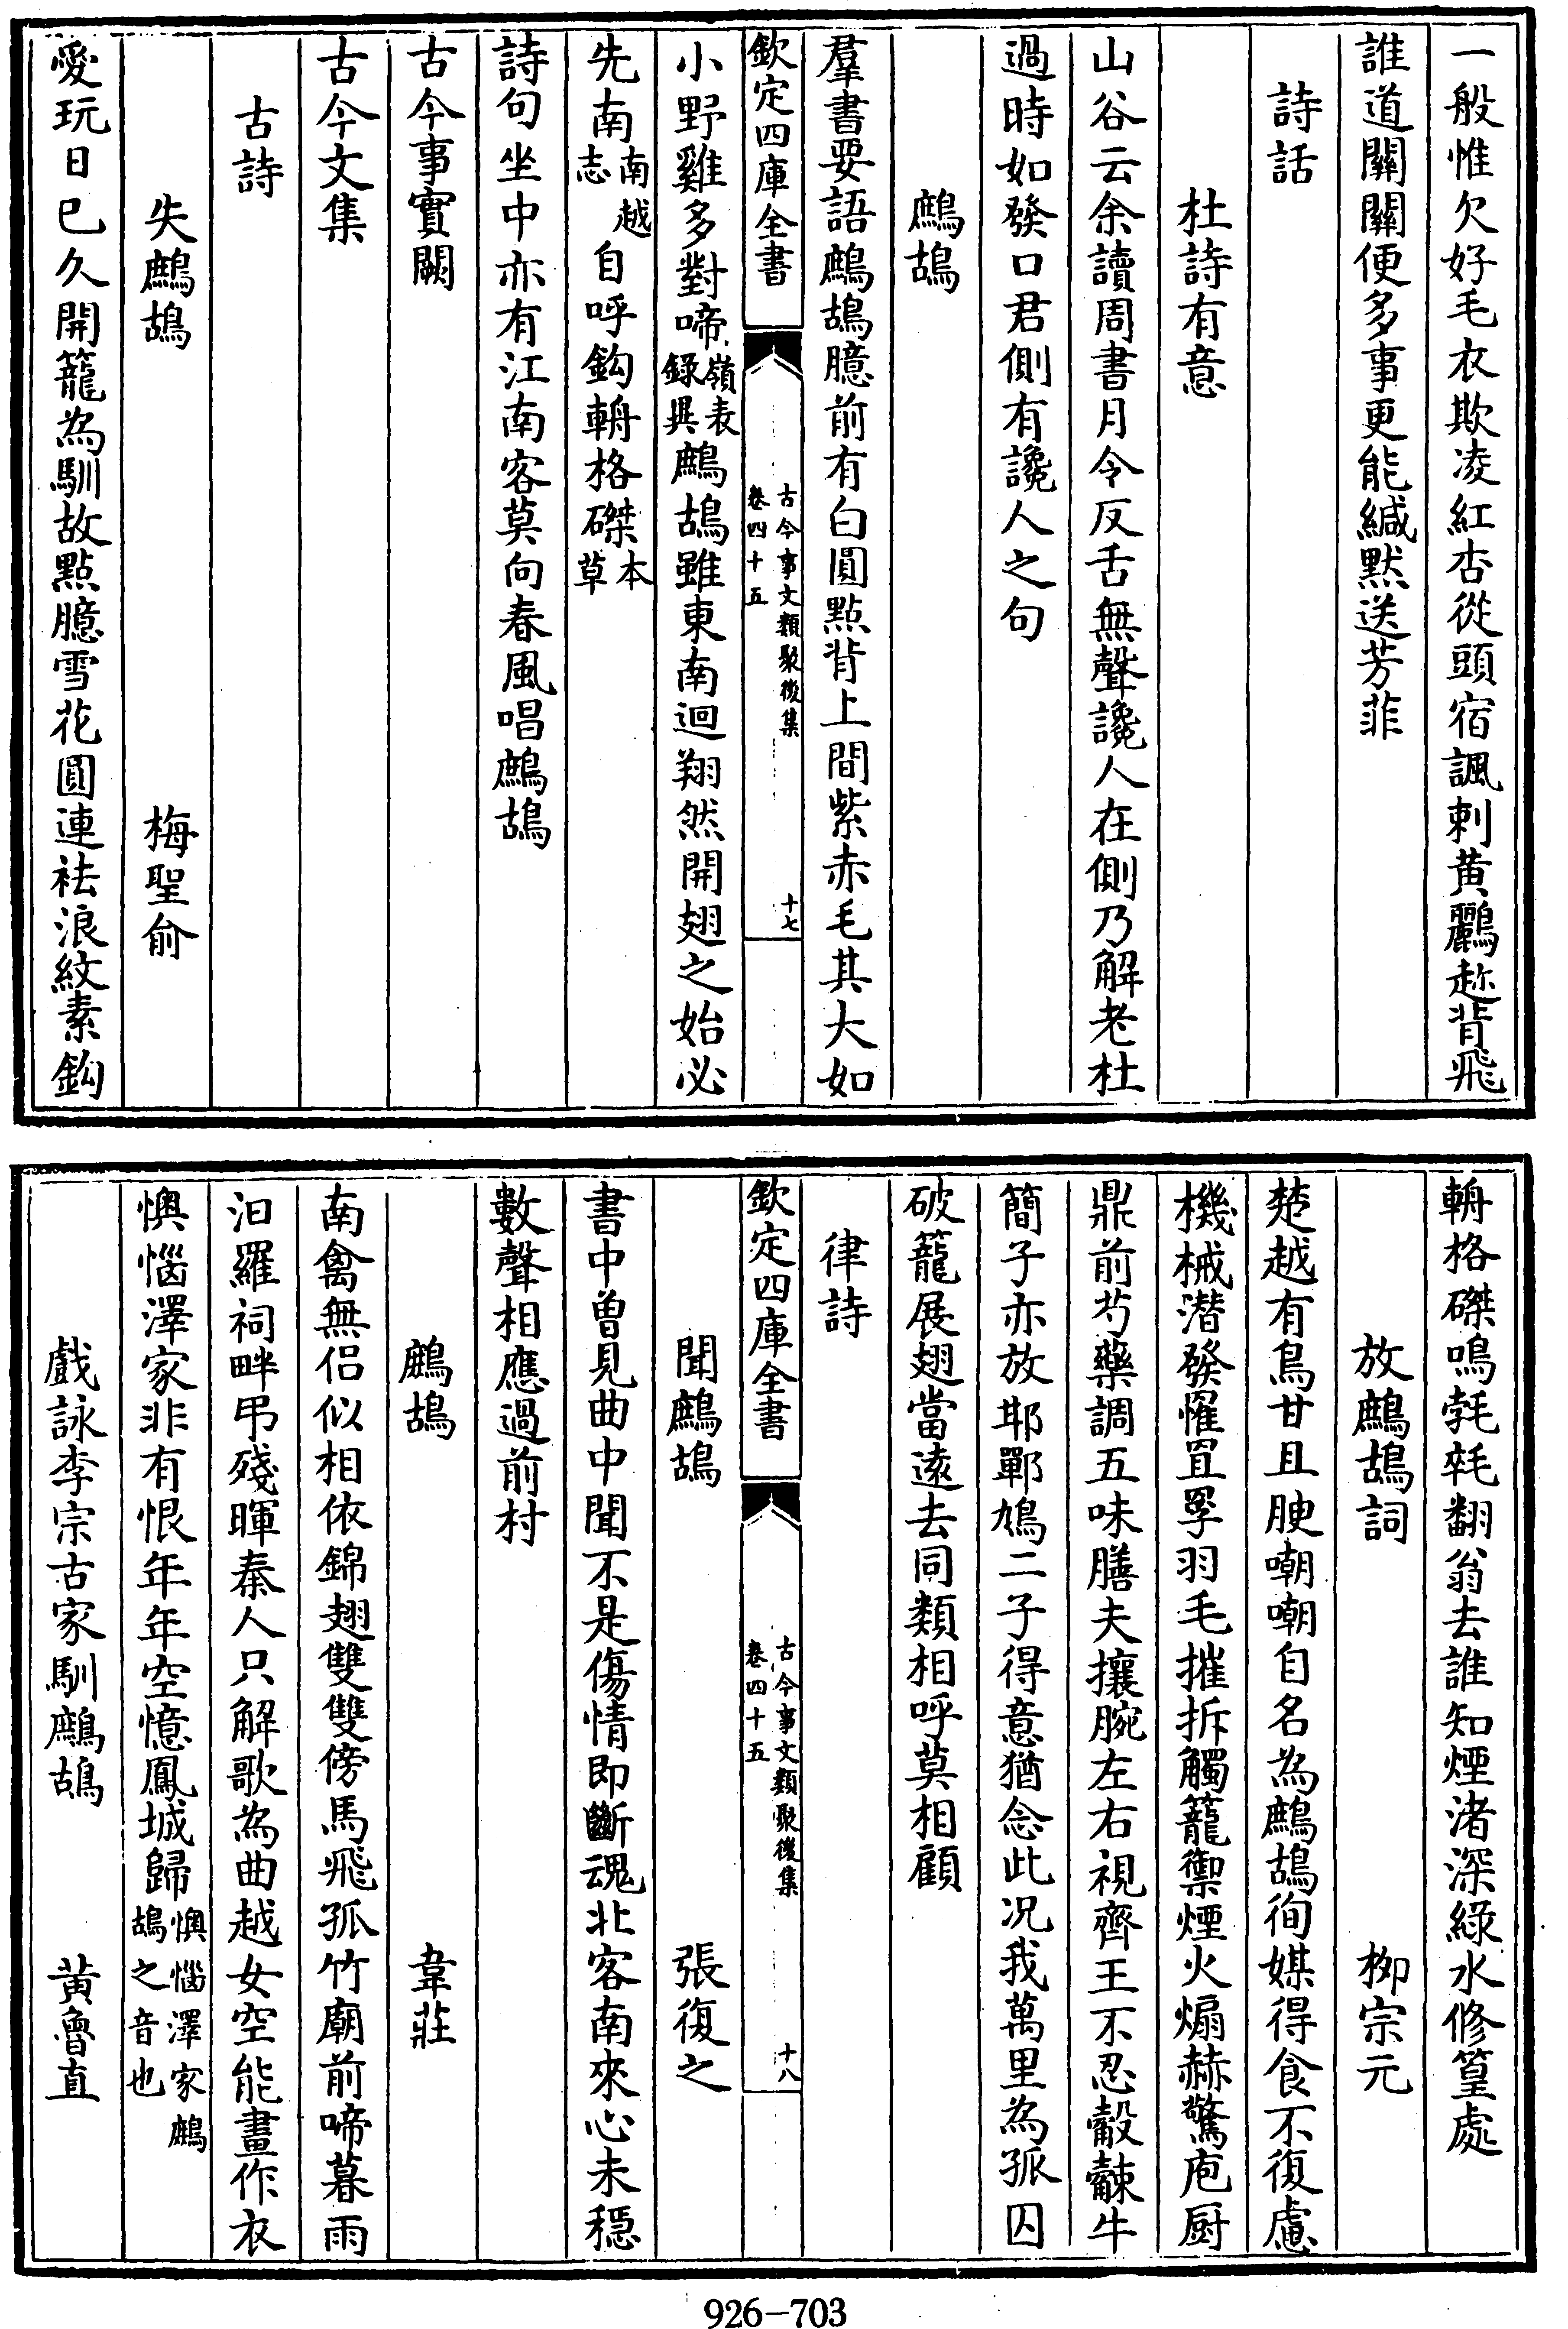 一般惟欠好毛衣欺凌紅杏從頭宿諷刺黃鸝趂背飛
誰道關關便多事更能緘黙送芳菲
詩話
杜詩有意
山谷云余讀周書月令反舌無聲讒人在側乃解老杜
過時如發口君側有讒人之句
鷓鴣
羣書要語鷓鴣臆前有白圓點背上間紫赤毛其大如
欽定四庫全書
古今事文類聚後集
卷四十五
十七
小野雞多對啼嶺表錄異鷓鴣雖東南迴翔然開翅之始必
先南南越志自呼鈎輈格磔本草
詩句坐中亦有江南客莫向春風唱鷓鴣
古今事實闕
古今文集
古詩
失鷓鴣 梅聖俞
愛玩日已久開籠為馴故點臆雪花圓連袪浪紋素鈎
輈格磔鳴㲃毸翻翁去誰知煙渚深綠水修篁處
放鷓鴣詞 栁宗元
楚越有鳥甘且腴嘲嘲自名為鷓鴣徇媒得食不復慮
機械潛發罹罝罦羽毛摧拆觸籠籞煙火煽赫驚庖厨
鼎前芍藥調五味膳夫攘腕左右視齊王不忍觳觫牛
簡子亦放邯鄲鳩二子得意猶念此况我萬里為孤囚
破籠展翅當遠去同類相呼莫相顧
律詩
欽定四庫全書
古今事文類聚後集
卷四十五
十八
聞鷓鴣 張復之
書中曽見曲中聞不是傷情即斷魂北客南來心未穩
數聲相應過前村
鷓鴣 韋莊
南禽無侣似相依錦翅雙雙傍馬飛孤竹廟前啼暮雨
汨羅祠畔弔殘暉秦人只解歌為曲越女空能畫作衣
懊惱澤家非有恨年年空憶鳳城歸懊惱澤家鷓鴣之音也
戲詠李宗古家馴鷓鴣 黄魯直
926-703